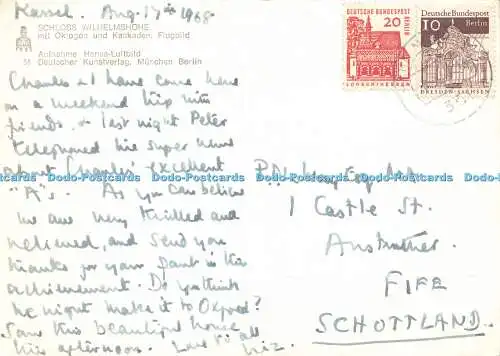 Kassel. Aug. 17th 1968
SCHLOSS WILHELMSHÖHE,
mit Oktogon und Kaskaden. Flugbild
Aufnahme Hansa-Luftbild
Deutscher Kunstverlag, München Berlin
Charles & I have come here
on a weekend trip with
friends. & last night Peter
telephoned his super news
about Charles' excellent
"A's. As you can believe
we are very thrilled and
relieved, and send you
thanks for your part in this
achievement. Do you think
he might make it to Oxford?
Saw this beautiful house
this afternoon. Love to all
Liz.
DEUTSCHE BUNDESPOST
BERLIN
20
LORSCH/HESSEN
Deutsche Bundespost
10
Berlin
DRESDEN-SACHSEN
Esq.
1 Castle St.
Anstruther.
FIFE
SCHOTTLAND.
Dodo-Postcards Dodo-Postcards Dodo-Postcards Dodo-Postcards Dodo-Postcards